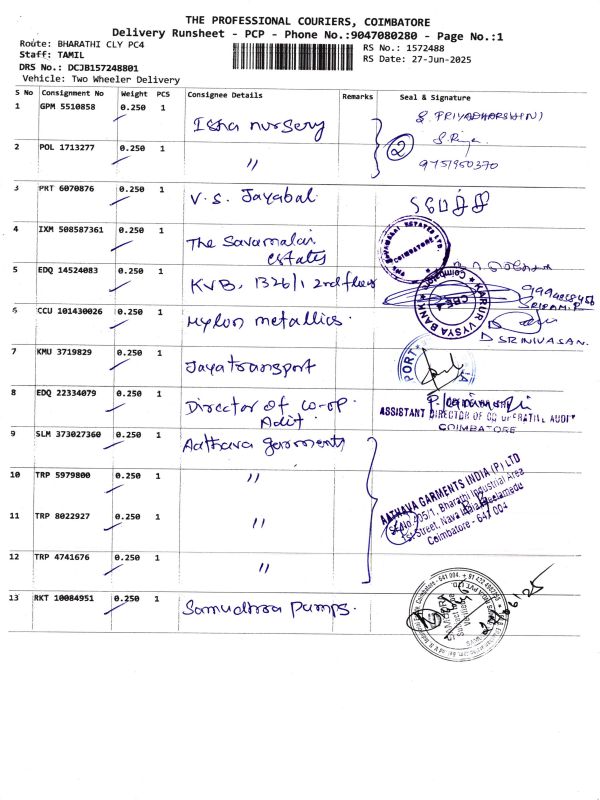 THE PROFESSIONAL COURIERS, COIMBATORE
Delivery Runsheet - PCP - Phone No.:9047080280 - Page No.:1
Route: BHARATHI CLY PC4
RS No.: 1572488
Staff: TAMIL
RS Date: 27-Jun-2025
DRS No.: DCJB157248801
Vehicle: Two Wheeler Delivery
S No Consignment No Weight PCS Consignee Details Remarks Seal & Signature
1 GPM 5510858 0.250 1 Isha nursery S. PRIYADHARSHINI
S. Priya
2 POL 1713277 0.250 1 〃 2 9751960370
3 PRT 6070876 0.250 1 V. S. Jayabal
4 IXM 508587361 0.250 1 The Savamalai estates
COIMBATORE
5 EDQ 14524083 0.250 1 KVB, 1326/1 2nd floor
KARUR VYSYA BANK
Coimbatore
CBE-4
SRIRAM.P
6 CCU 101430026 0.250 1 Mylon metallics.
D SRINIVASAN.
7 KMU 3719829 0.250 1 Jaya transport
PORT
8 EDQ 22334079 0.250 1 Director of co-op Adit.
ASSISTANT DIRECTOR OF CO OPERATIVE AUDIT
COIMBATORE
9 SLM 373027360 0.250 1 Aathava garments
10 TRP 5979800 0.250 1 〃
AATHAVA GARMENTS INDIA (P) LTD
S.F.No.205/1, Bharathi Industrial Area
1st Street, Nava India, Peelamedu
Coimbatore - 641 004
11 TRP 8022927 0.250 1 〃
12 TRP 4741676 0.250 1 〃
13 RKT 10084951 0.250 1 Samudhra Pumps.